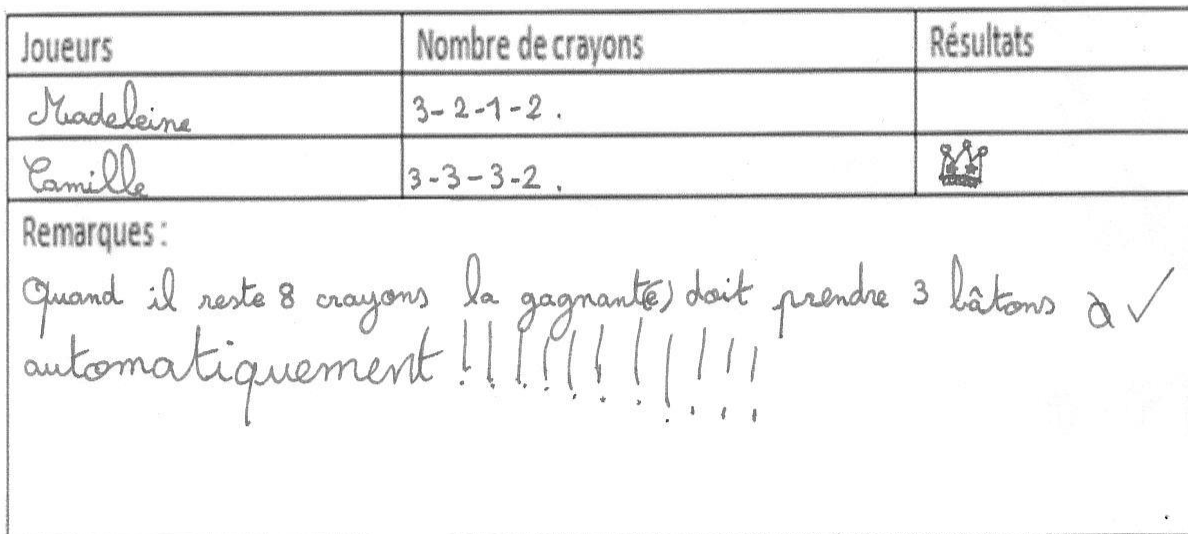 Joueurs Nombre de crayons Résultats
Madeleine 3-2-1-2.
Camille 3-3-3-2.
Remarques :
Quand il reste 8 crayons la gagnant(e) doit prendre 3 bâtons à ✓
automatiquement !!!!!!!!!!!